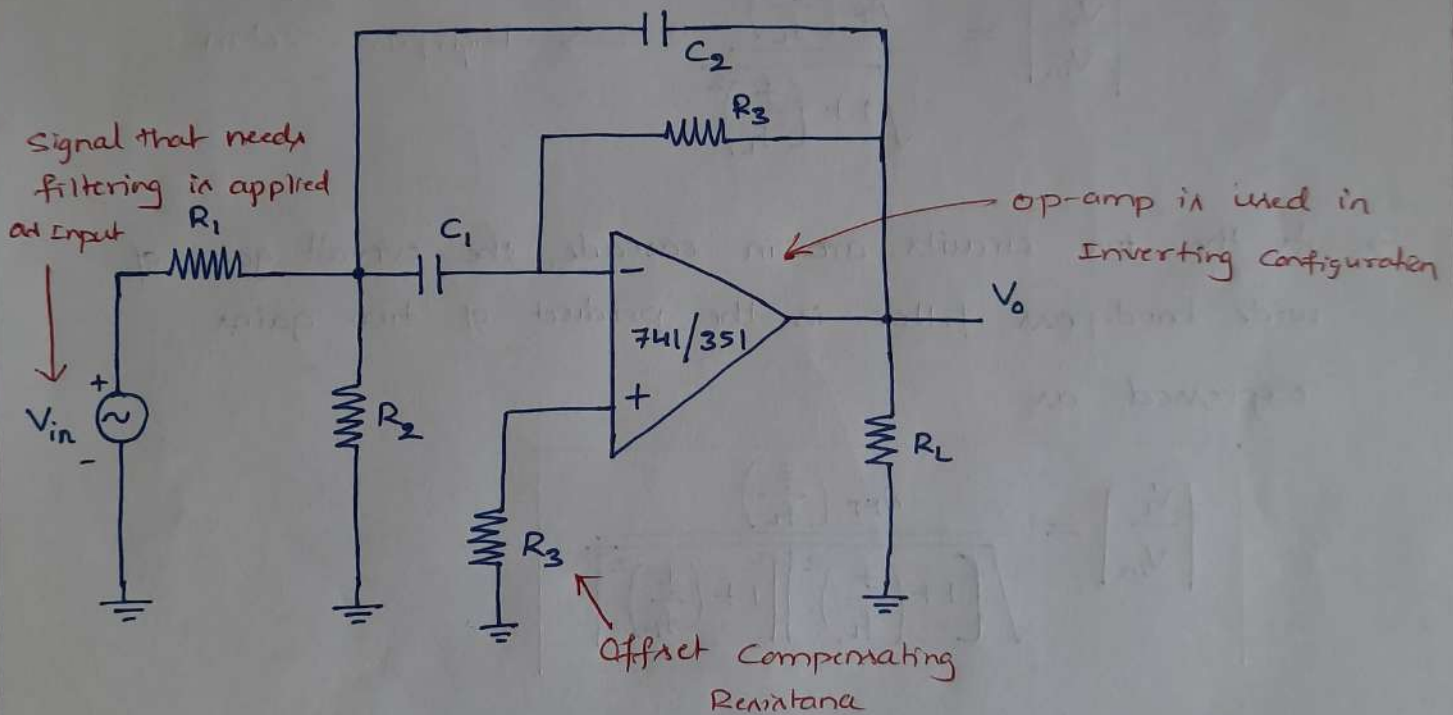 C2
R3
Signal that needs
filtering is applied
as Input
R1
C1
op-amp is used in
Inverting Configuration
-
741/351
+
Vo
+
Vin
-
R2
RL
R3
Offset Compensating
Resistance